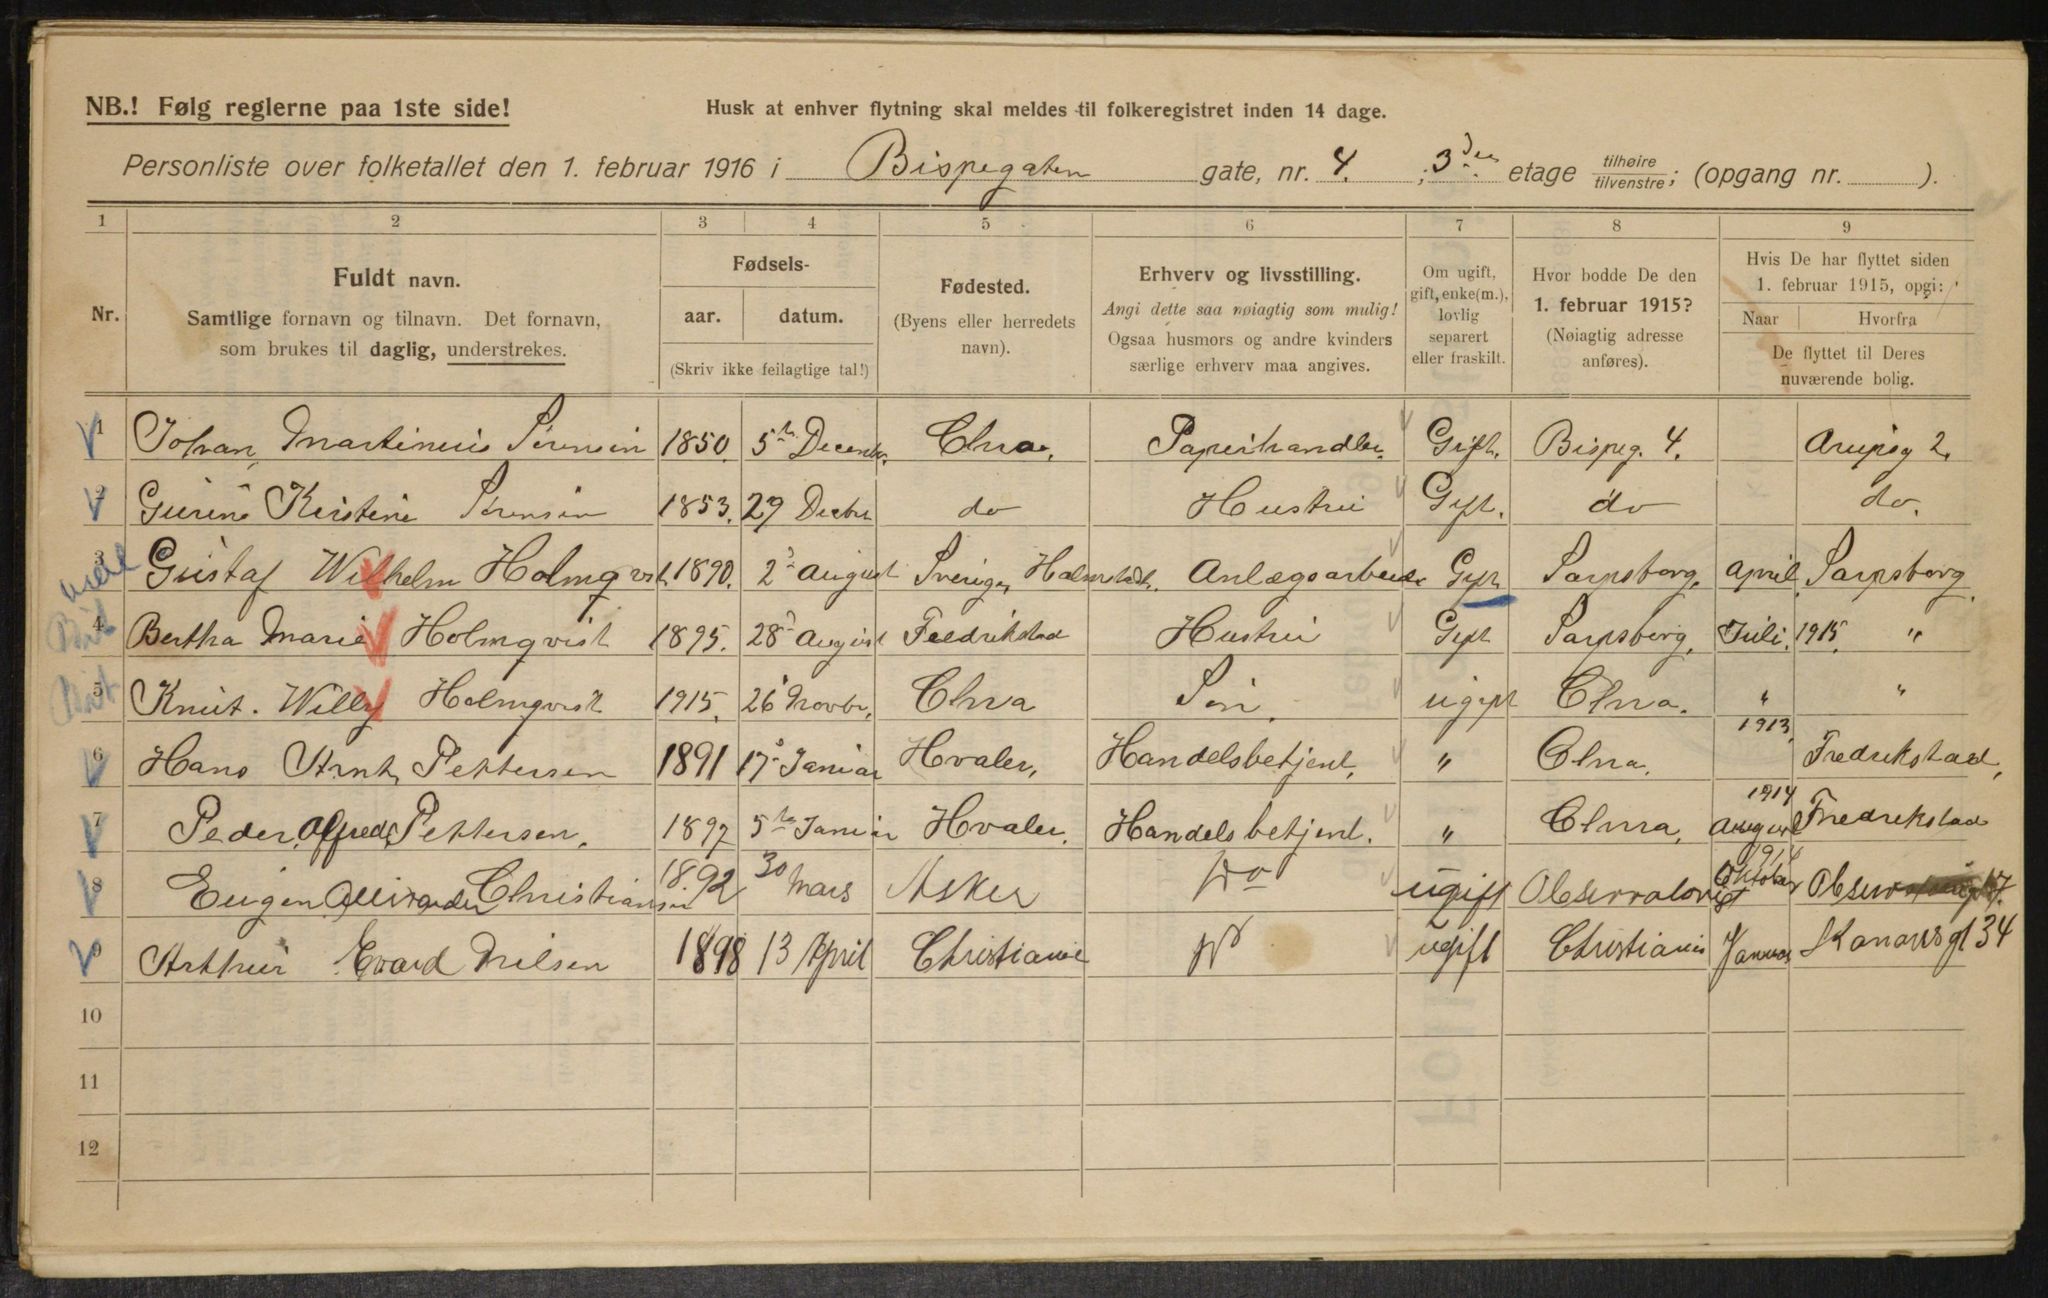 NB.! Følg reglerne paa 1ste side!
Husk at enhver flytning skal meldes til folkeregistret inden 14 dage.
Personliste over folketallet den 1. februar 1916 i Bispegaten gate, nr. 4. ; 3den etage tilhøire/tilvenstre; (opgang nr. ).
1 2 3 4 5 6 7 8 9
Nr.
Fuldt navn.
Samtlige fornavn og tilnavn. Det fornavn,
som brukes til daglig, understrekes.
Fødsels-
aar. datum.
(Skriv ikke feilagtige tal!)
Fødested.
(Byens eller herredets
navn).
Erhverv og livsstilling.
Angi dette saa nøiagtig som mulig!
Ogsaa husmors og andre kvinders
særlige erhverv maa angives.
Om ugift,
gift, enke(m.),
lovlig
separert
eller fraskilt.
Hvor bodde De den
1. februar 1915?
(Nøiagtig adresse
anføres).
Hvis De har flyttet siden
1. februar 1915, opgi:
Naar Hvorfra
De flyttet til Deres
nuværende bolig.
1 Johan Martinius Sørensen 1850. 5te Decembr. Chra. Papirhandler. Gift. Bispeg. 4. Arupsg 2.
2 Gurine Kirstine Sørensen 1853. 29 Decbr do Hustru Gift. do do.
3 Gustaf Wilhelm Holmqvist. 1890. 2 August Sverige, Halmstadt. Anlægsarbeider Gift Sarpsborg. April Sarpsborg.
4 Bertha Marie Holmqvist 1895. 28 August Fredrikstad Hustru Gift Sarpsborg. Juli. 1915. "
5 Knut. Willy Holmqvist 1915. 26 Novbr. Chra Søn. ugift Chra. " "
6 Hans Arnt Pettersen 1891 17 Januar Hvaler. Handelsbetjent. " Chra. 1913. Fredrikstad.
7 Peder Alfred Pettersen. 1897 5te Januar Hvaler. Handelsbetjent. " Chra. 1914 August Fredrikstad
8 Eugen Christiansen 1892 30 Mars Asker Do ugift Oktober
9 Arthur Evard Nilsen 1898 13 April Christiania Do ugift Christiania Januar Kanalsgt 34
10
11
12